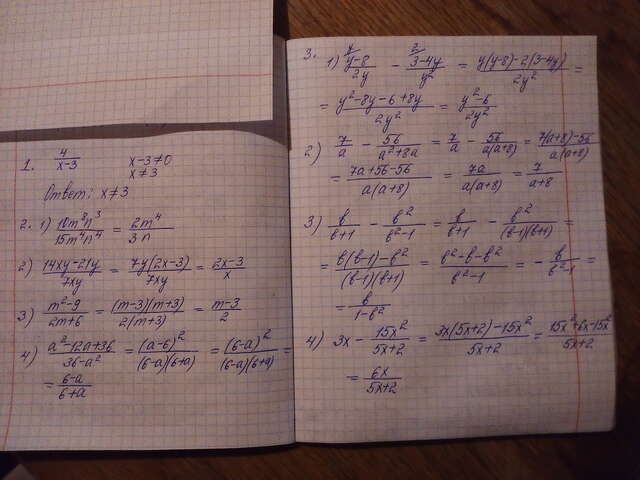 1. 4/(x-3)   x-3≠0
x≠3
Ответ: x≠3
2. 1) 10m⁸n³/15m⁴n⁴ = 2m⁴/3n
2) (14xy-21y)/7xy = 7y(2x-3)/7xy = (2x-3)/x
3) (m²-9)/(2m+6) = (m-3)(m+3)/2(m+3) = (m-3)/2
4) (a²-12a+36)/(36-a²) = (a-6)²/(6-a)(6+a) = (6-a)²/(6-a)(6+a) =
= (6-a)/(6+a)
3. 1) (y-8)/2y - (3-4y)/y² = (y(y-8)-2(3-4y))/2y² =
= (y²-8y-6+8y)/2y² = (y²-6)/2y²
2) 7/a - 56/(a²+8a) = 7/a - 56/a(a+8) = (7(a+8)-56)/a(a+8) =
= (7a+56-56)/a(a+8) = 7a/a(a+8) = 7/(a+8)
3) b/(b+1) - b²/(b²-1) = b/(b+1) - b²/(b-1)(b+1) =
= (b(b-1)-b²)/(b-1)(b+1) = (b²-b-b²)/(b²-1) = - b/(b²-1) =
= b/(1-b²)
4) 3x - 15x²/(5x+2) = (3x(5x+2)-15x²)/(5x+2) = (15x²+6x-15x²)/(5x+2) =
= 6x/(5x+2)